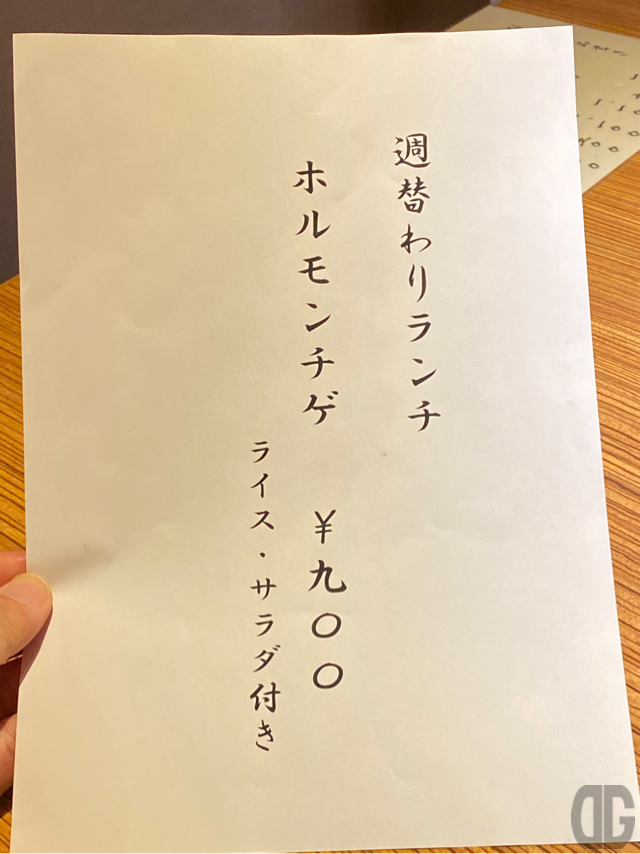 週替わりランチ
ホルモンチゲ ¥九〇〇
ライス・サラダ付き
DG